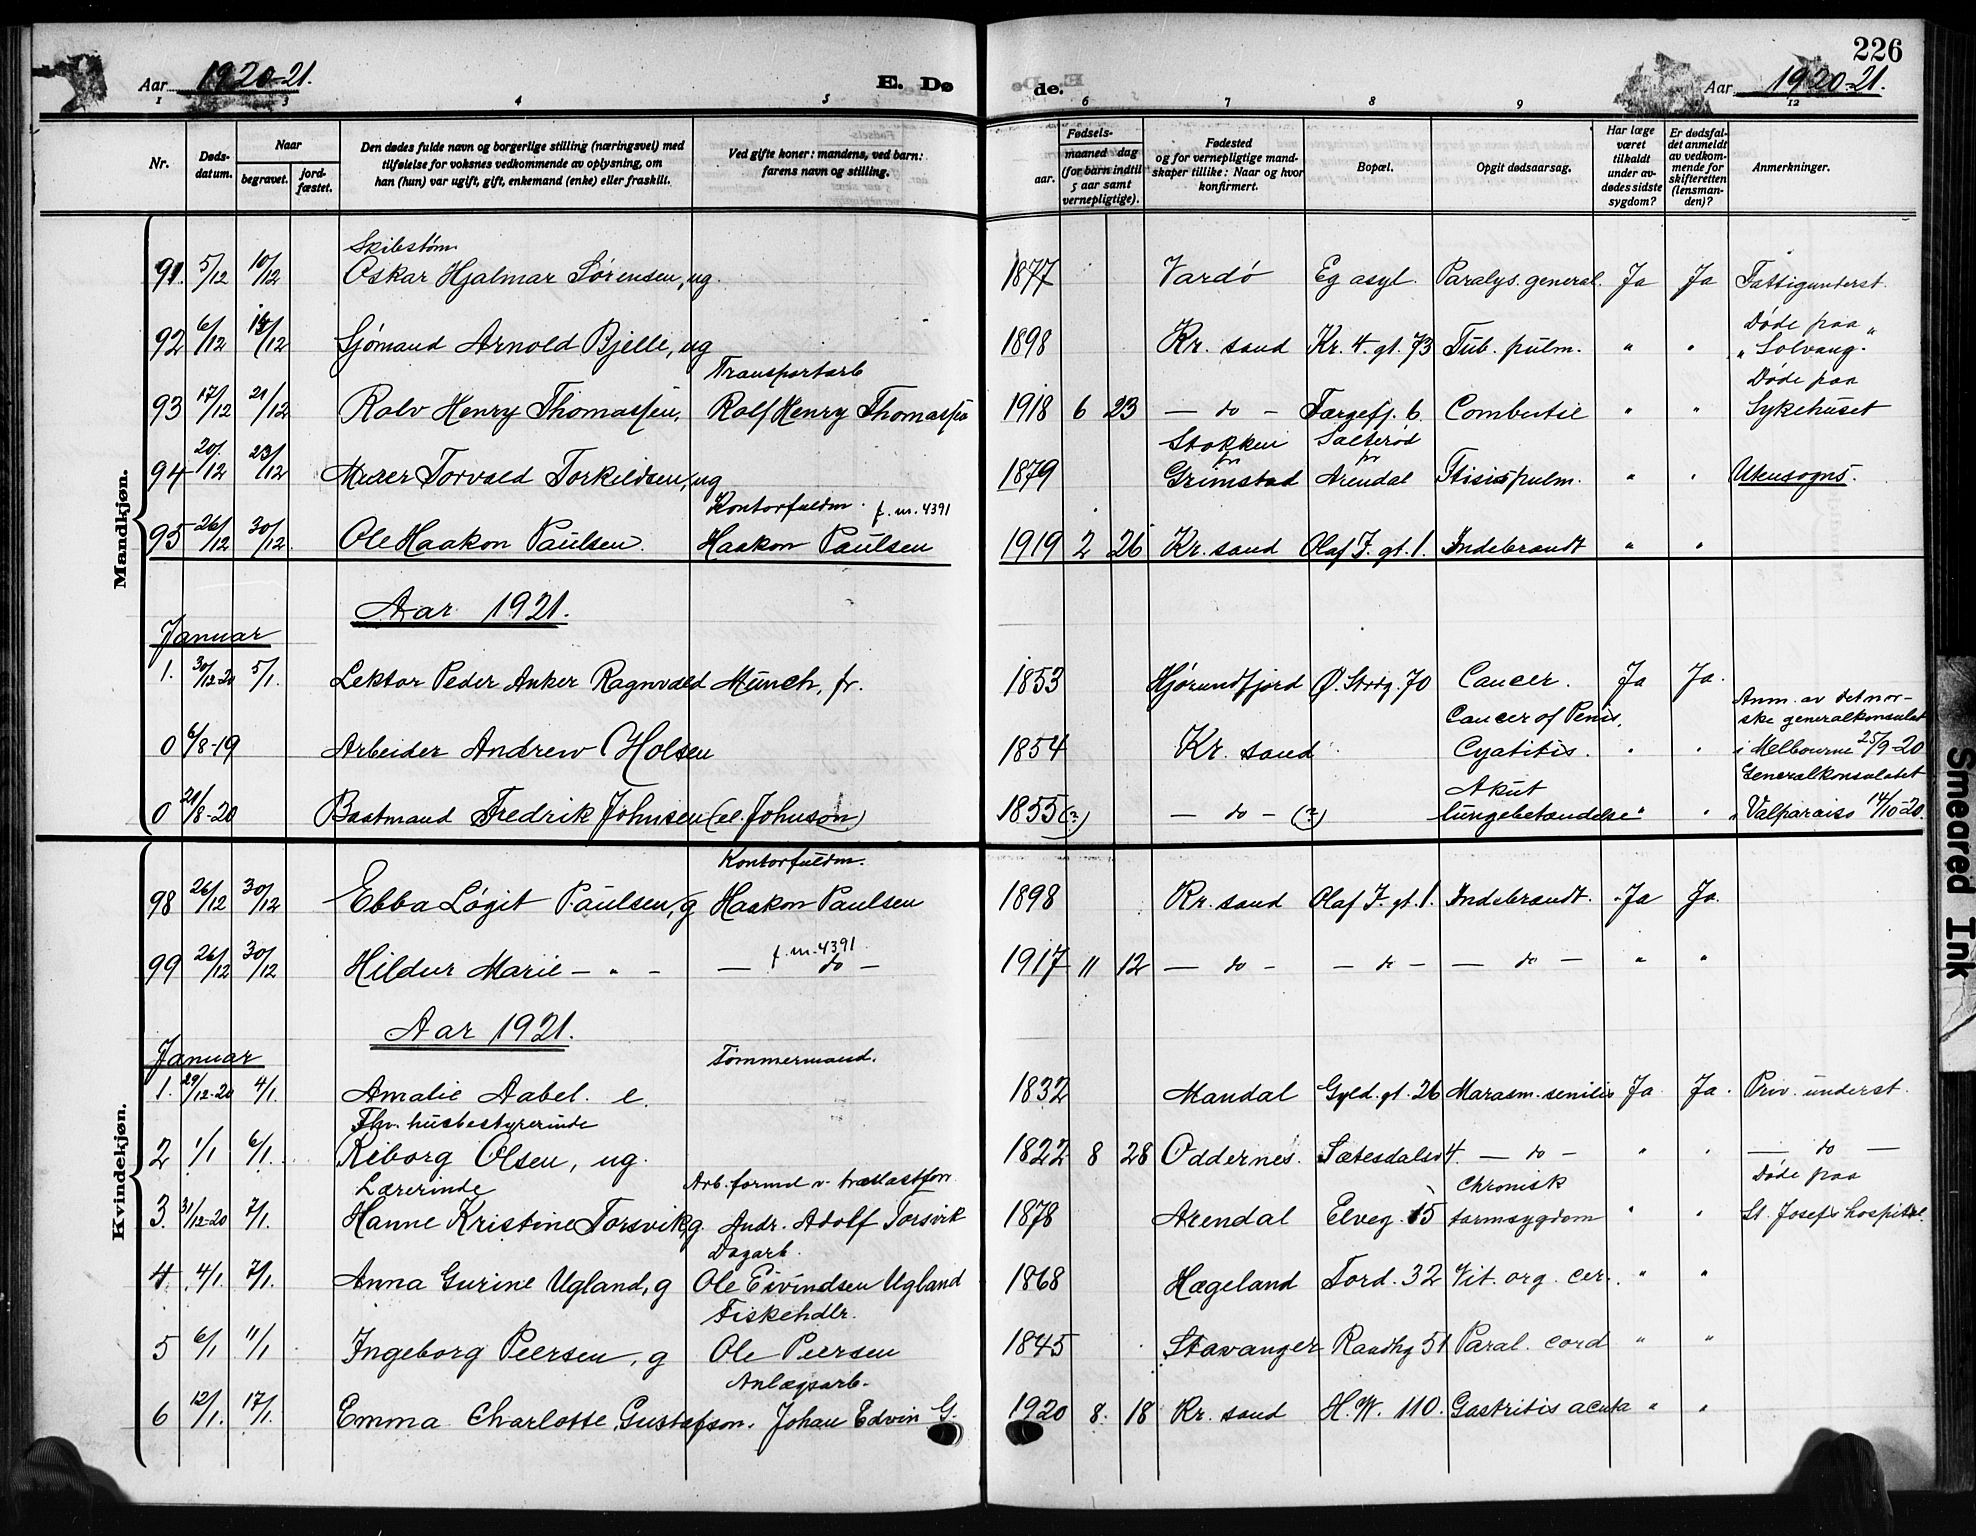 226
Aar 1920-21. E. Dø de. Aar 1920-21.
1 3 4 5 6 7 8 9 12
Nr. Døds-datum. Naar begravet. jord-fæstet. Den dødes fulde navn og borgerlige stilling (næringsvei) med tilføielse for voksnes vedkommende av oplysning, om han (hun) var ugift, gift, enkemand (enke) eller fraskilt. Ved gifte koner: mandens, ved barn: farens navn og stilling. Fødsels- aar. maaned dag (for barn indtil 5 aar samt vernepligtige). Fødested og for vernepligtige mand-skaper tillike: Naar og hvor konfirmert. Bopæl. Opgit dødsaarsag. Har læge været tilkaldt under av-dødes sidste sygdom? Er dødsfal-det anmeldt av vedkom-mende for skifteretten (lensman-den)? Anmerkninger.
Mandkjøn.
Skibstøm.
91. 5/12 10/12 Oskar Hjalmar Sørensen, ug. 1877 Vardø Eg asyl. Paralys. general. Ja Ja Fattigunderst.
Døde paa
92 6/12 14/12 Sjømand Arnold Bjelle, ug 1898 Kr. sand Kr. 4. gt. 73 Tub. pulm. " " "Solvang."
Transportarb Døde paa
93 17/12 21/12 Rolv Henry Thomassen, Rolf Henry Thomassen 1918 6 23 — do — Fargefj. 6 Combustie " " Sykehuset
Stokken Salterød
94 20/12 23/12 Murer Torvald Torkildsen, ug 1879 pr Grimstad pr Arendal Ftisis pulm. " " Utensogns.
Kontorfuldm. f. m. 4391
95 26/12 30/12 Ole Haakon Paulsen. Haakon Paulsen 1919 2 26 Kr. sand Olaf T. gt. 1. Indebrændt " "
Aar 1921.
Januar
1. 30/12-20 5/1. Lektor Peder Anker Ragnvald Münch, fr. 1853 Hjørundfjord Ø. Strdg. 70 Cancer. Ja Ja.
Cancer of Penis, Anm. av det nor-
ske generalkonsulat
0 6/8-19 Arbeider Andrew Holsen 1854 Kr. sand Cyatitis. " " i Melbourne 25/9-20
Akut Generalkonsulatet
0 21/8-20 Baatmand Fredrik Johnsen (el. Johnson) 1855 (?) — do — (?) lungebetændelse " " " Valparaiso 14/10-20.
Kvindekjøn.
Kontorfuldm.
98 26/12 30/12 Ebba Løgit Paulsen, g Haakon Paulsen 1898 Kr. sand Olaf T. gt. 1. Indebrændt. Ja Ja.
f. m. 4391
99 26/12 30/12 Hildur Marie — " — — do — 1917 11 12 — do — — do — — do — " "
Aar 1921.
Januar Tømmermand.
1. 29/12-20 4/1. Amalie Aabel. e. 1832 Mandal Gyld. gt. 26 Marasm. senilis Ja Ja. Priv. underst.
Fhv. husbestyrerinde
2 1/1 6/1. Riborg Olsen, ug. 1822 8 28 Oddernes. Sætesdalsv 4. — do — " " — do —
Lærerinde Arb.formd v. trælastforr. Chronisk Døde paa
3. 31/12-20 7/1. Hanne Kristine Torsvik g. Andr. Adolf Torsvik 1878 Arendal Elveg. 15 tarmsygdom " " St. Josefs hospital.
Dagarb.
4 4/1. 7/1. Anna Gurine Ugland, g Ole Eivindsen Ugland 1868 Hægeland Tord. 32 Vit. org. cor. " "
Fiskehdlr.
5 6/1 11/1 Ingeborg Peersen, g Ole Peersen 1845 Stavanger Raadhg 51 Paral. cord " "
Anlægsarb.
6 12/1. 17/1. Emma Charlotte Gustafson. Johan Edvin G. 1920 8. 18 Kr. sand H. W. 110. Gastritis acuta " "
Smeared Ink